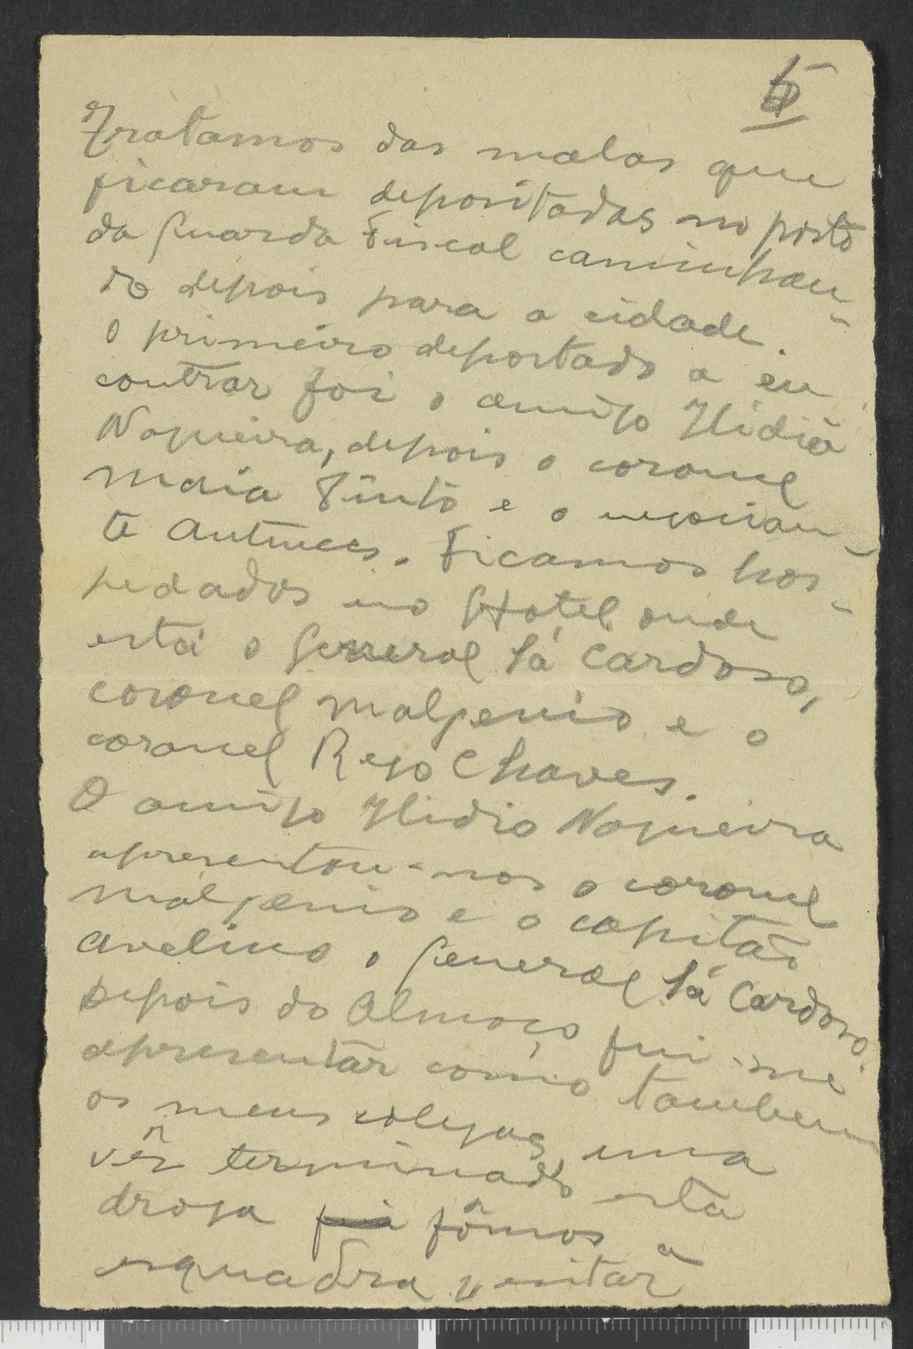 5
Tratamos das malas que
ficaram depositadas no posto
da Guarda Fiscal caminhan-
do depois para a cidade.
O primeiro deportado a en
contrar foi o amigo Ilidio
Nogueira, depois o coronel
Maia Pinto e o negocian-
te Antunes. Ficamos hos-
pedados no Hotel onde
está o General Sá Cardoso,
coronel Malgenio e o
coronel Rego Chaves.
O amigo Ilidio Nogueira
apresentou-nos o coronel
Malgenio e o capitão
Avelino, o General Sá Cardoso.
Depois do Almoço fui-me
apresentar como tambem
os meus colegas, uma
vês terminado esta
droga foi fômos a
esquadra visitar